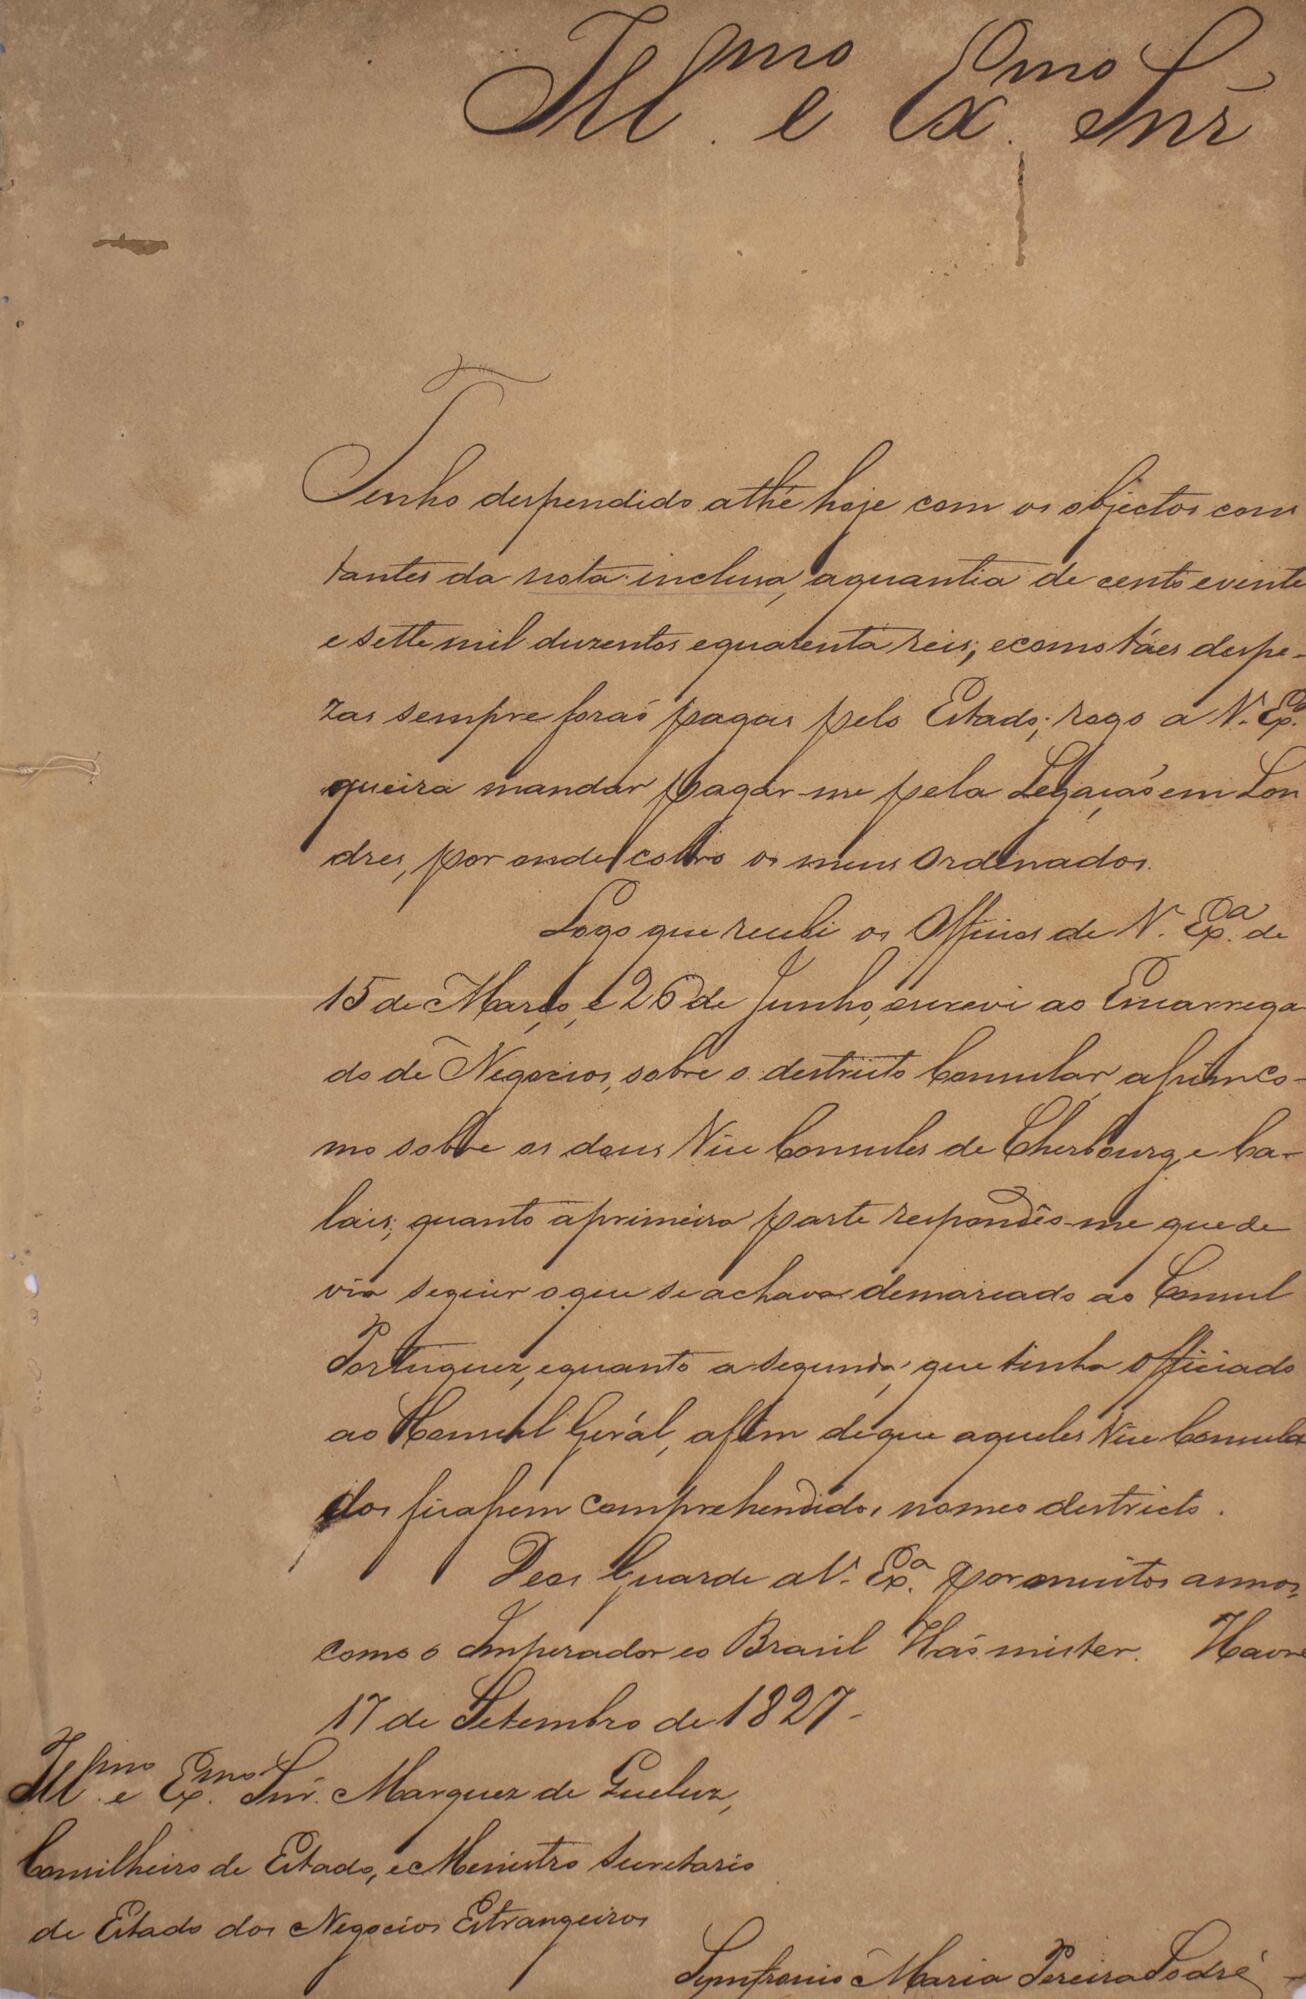 Ill.mo e Ex.mo Snr̃
Tenho despendido athé hoje com os objectos cons
tantes da nota inclusa, aquantia de cento evinte
e sette mil duzentos equarenta reis; ecomo táes despe-
zas sempre foraõ pagas pelo Estado; rogo a V. Ex.a
queira mandar pagar-me pela Legaçaõ em Lon
dres, por onde cobro os meus Ordenados.
Logo que recebi os Officios de V. Ex.a de
15 de Março, e 26 de Junho, escrevi ao Encarrega
do de Negocios, sobre o destricto Consular, assim co-
mo sobre os dous Vice Consules de Cherbourg e Ca-
lais; quanto aprimeira parte respondêo-me que de
via seguir oque se achava demarcado ao Consul
Portuguez, equanto a segunda, que tinha officiado
ao Consul Gerál, afim deque aqueles Vice Consula
dos ficassem comprehendidos nomeo destricto.
Deos Guarde a V. Ex.a por muitos annos,
como o Imperador eo Brasil Haõ mister. Havre
17 de Setembro de 1827-
Ill.mo e Ex.mo Snr. Marquez de Queluz,
Conselheiro de Estado, e Menistro Secretario
de Estado dos Negocios Estrangeiros
Symfronio Maria Pereira Sodré